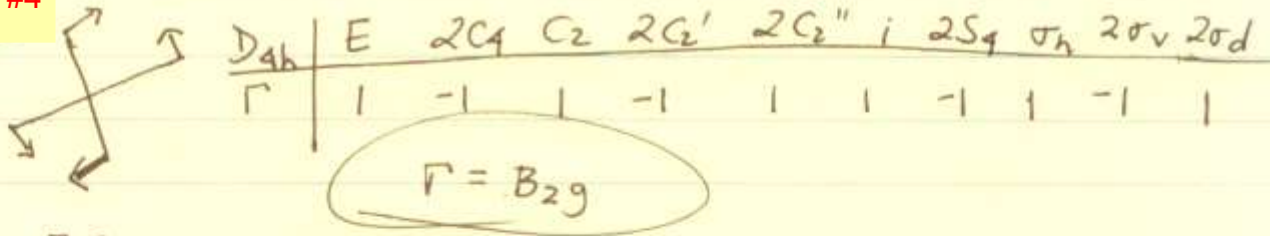 #4
D4h | E 2C4 C2 2C2' 2C2" i 2S4 σh 2σv 2σd
Γ | 1 -1 1 -1 1 1 -1 1 -1 1
Γ = B2g